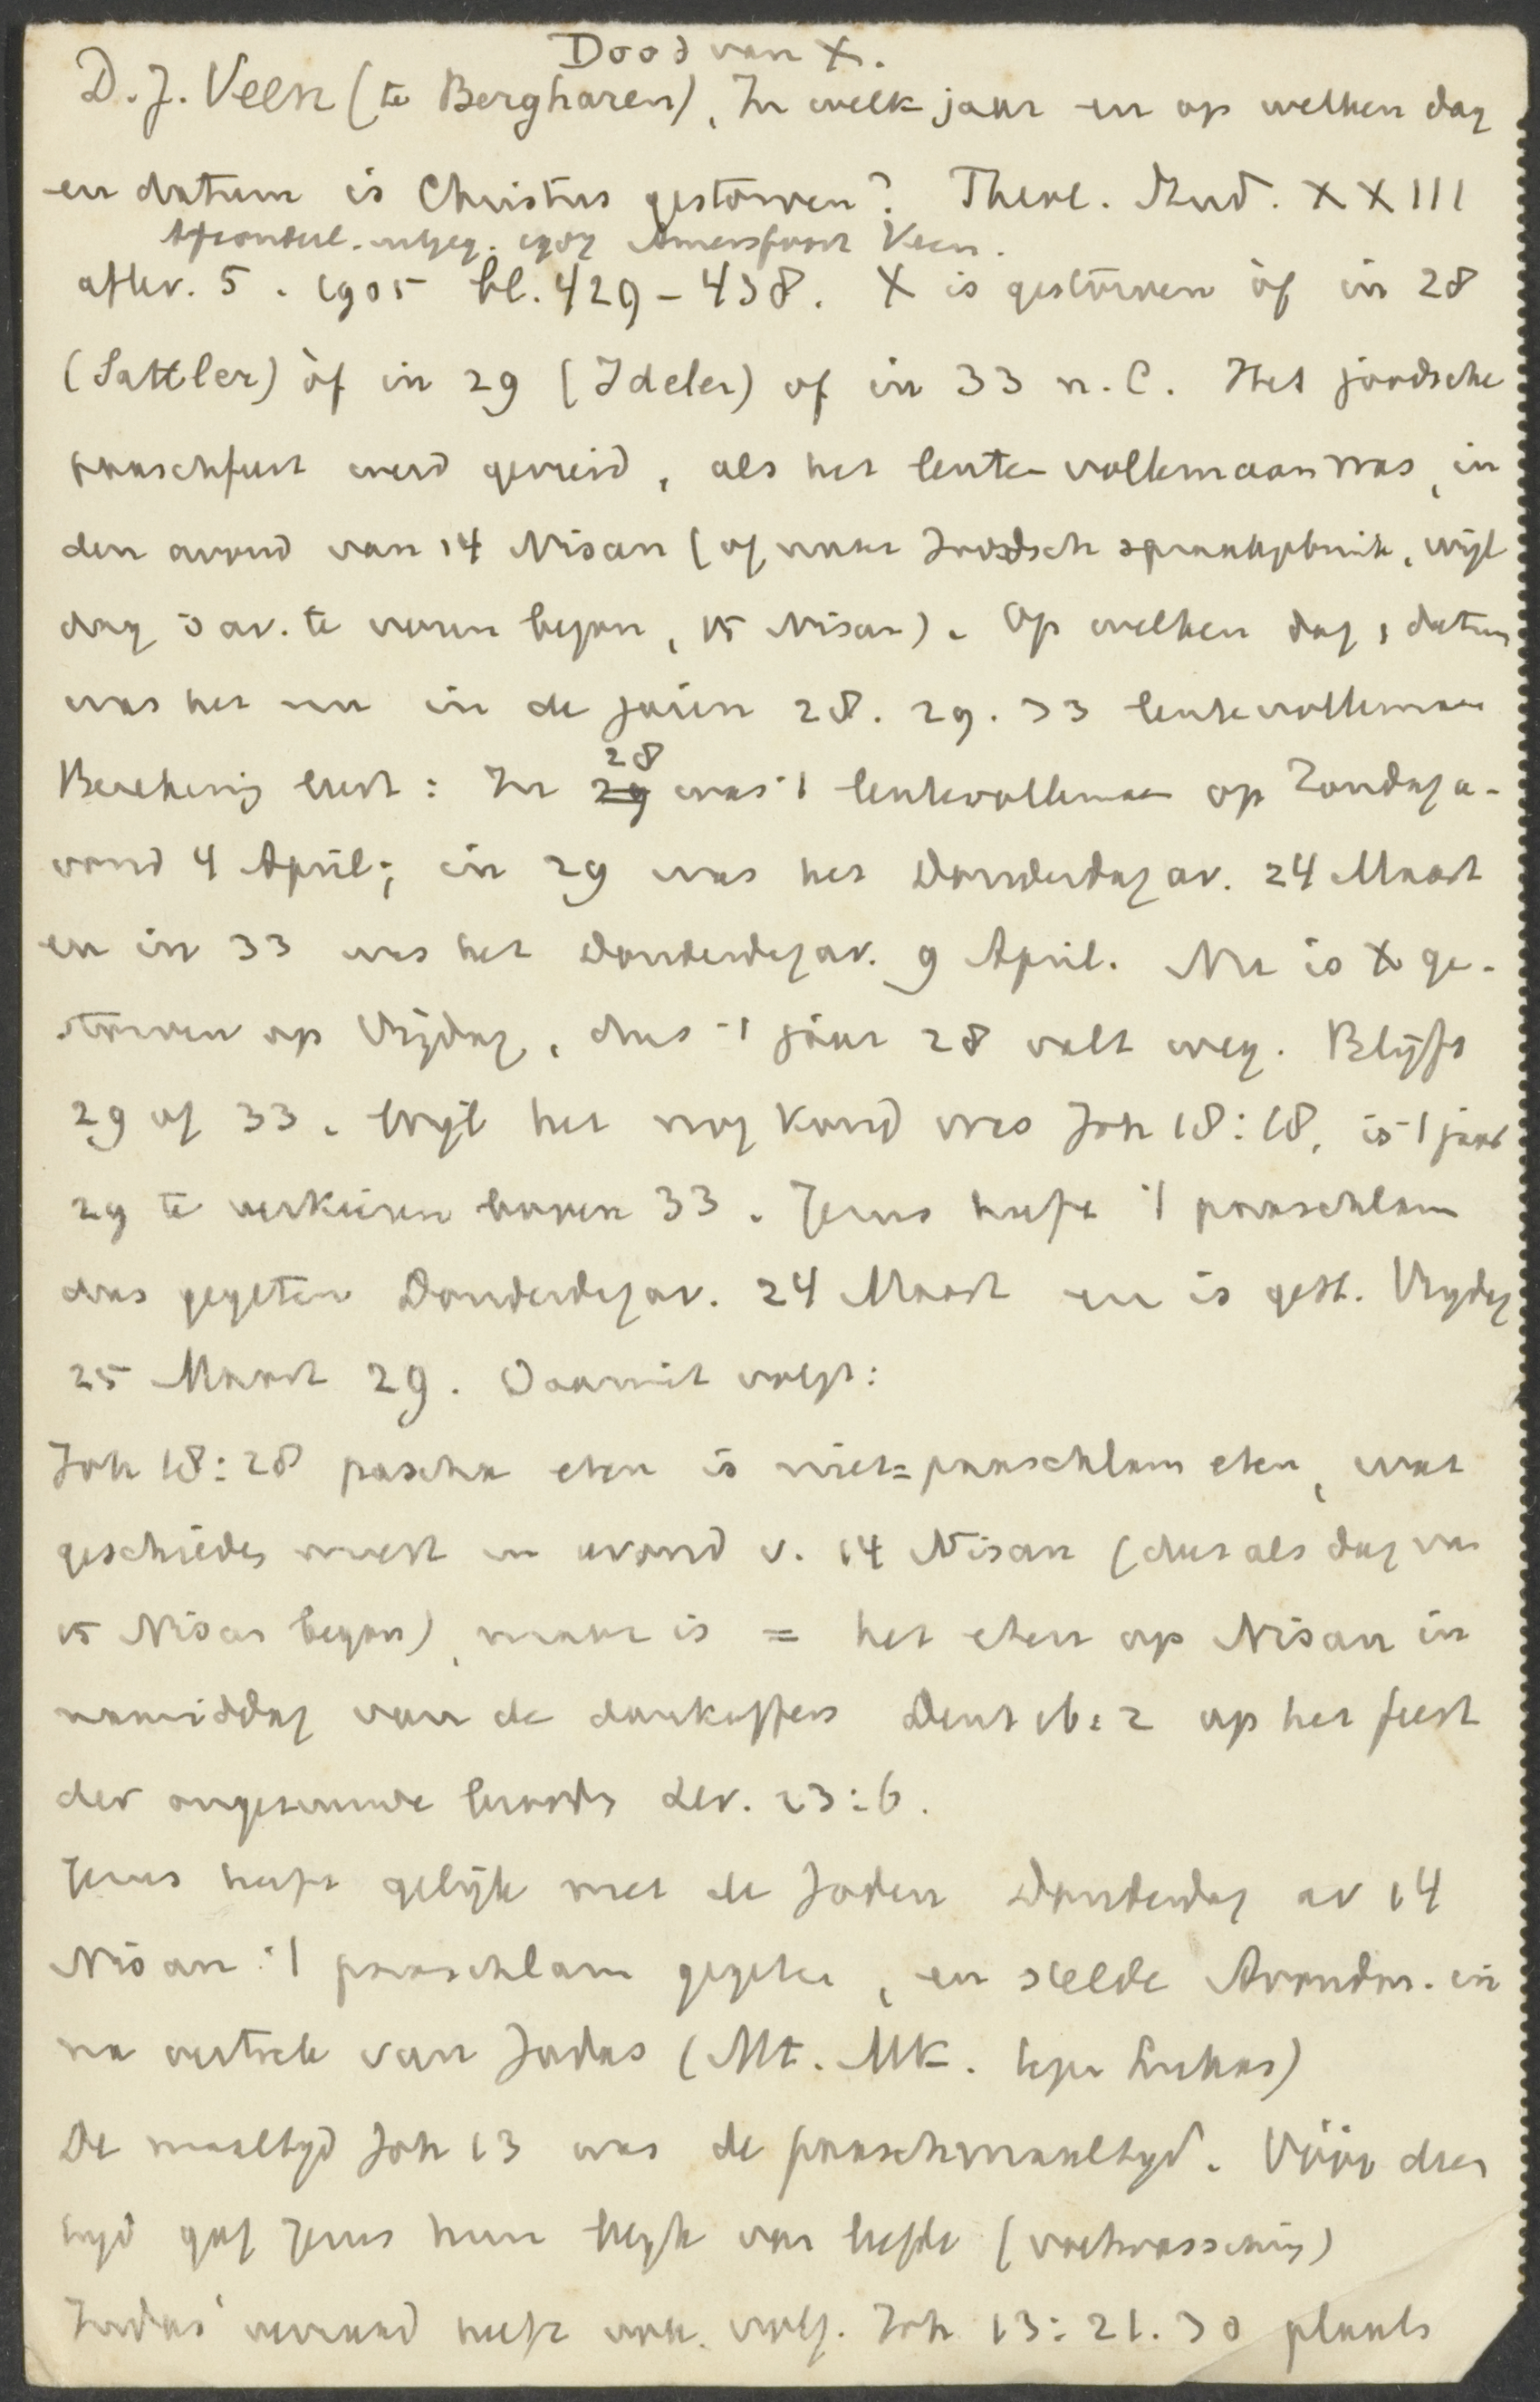 Dood van X.
D. J. Veen (te Bergharen), In welk jaar en op welken dag
en datum is Christus gestorven? Theol. Stud. XXIII
Afzonderl. uitgeg. 1907 Amersfoort Veen.
aflev. 5. 1905 bl. 429-438. X is gestorven òf in 28
(Sattler) òf in 29 (Ideler) of in 33 n. C. Het joodsche
paaschfeest werd gevierd, als het lente-vollemaan was, in
den avond van 14 Nisan (of naar Joodsch spraakgebruik, wijl
dag 's av. te voren begon, 15 Nisan). Op welken dag, datum
was het nu in de jaren 28. 29. 33 lentevollemaan
Berekening leert: In 28 was 't lentevollemaan op Zondaga-
vond 4 April; in 29 was het Donderdag av. 24 Maart
en in 33 was het Donderdag av. 9 April. Nu is X ge-
storven op Vrijdag, dus 't jaar 28 valt weg. Blijft
29 of 33. Wijl het nog koud was Joh 18:18, is 't jaar
29 te verkiezen boven 33. Jezus heeft 't paaschlam
dus gegeten Donderdag av. 24 Maart en is gest. Vrijdag
25 Maart 29. Daaruit volgt:
Joh 18:28 pascha eten is niet = paaschlam eten, wat
geschieden moest in avond v. 14 Nisan (dus als dag van
15 Nisan begon), maar is = het eten op Nisan in
namiddag van de dankoffers Deut 16:2 op het feest
der ongezuurde brooden Lev. 23:6.
Jezus heeft gelijk met de Joden Donderdag av 14
Nisan 't paaschlam gegeten, en stelde Avondm. in
na vertrek van Judas (Mt. Mk. tegen Lukas)
De maaltijd Joh 13 was de paaschmaaltijd. Vóór dien
tijd gaf Jezus hun blijk van liefde (voetwassching)
Judas' verraad heeft volg. Joh 13:21. 30 plaats